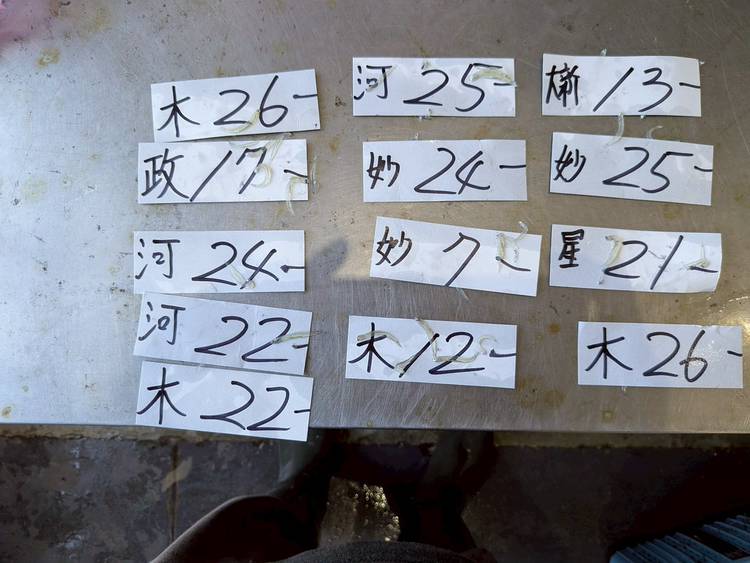 木 26-
河 25-
㭜 13-
政 17-
妙 24-
妙 25-
河 24-
妙 7-
星 21-
河 22-
木 12-
木 26-
木 22-